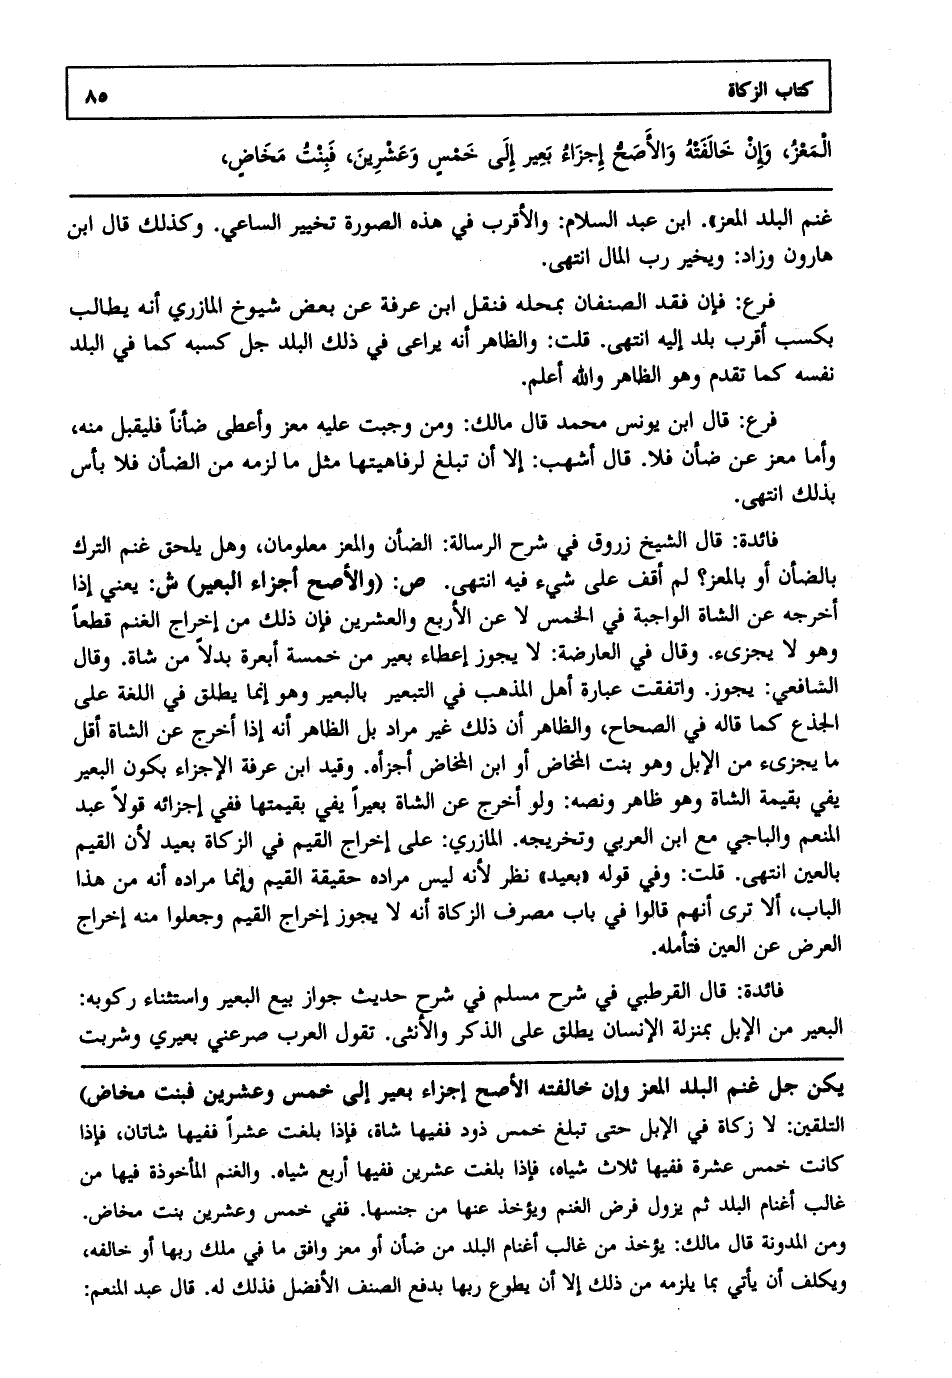 كتاب الزكاة ٨٥
الْمَعْزُ، وَإِنْ خَالَفَتْهُ وَالأَصَحُّ إِجزَاءُ بَعِير إِلَى خَمْسٍ وَعَشْرِينَ، فَبِنْتُ مَخَاضٍ،
غنم البلد المعز». ابن عبد السلام: والأقرب في هذه الصورة تخيير الساعي. وكذلك قال ابن
هارون وزاد: ويخير رب المال انتهى.
فرع: فإن فقد الصنفان بمحله فنقل ابن عرفة عن بعض شيوخ المازري أنه يطالب
بكسب أقرب بلد إليه انتهى. قلت: والظاهر أنه يراعى في ذلك البلد جل كسبه كما في البلد
نفسه كما تقدم وهو الظاهر والله أعلم.
فرع: قال ابن يونس محمد قال مالك: ومن وجبت عليه معز وأعطى ضأناً فليقبل منه،
وأما معز عن ضأن فلا. قال أشهب: إلا أن تبلغ لرفاهيتها مثل ما لزمه من الضأن فلا بأس
بذلك انتهى.
فائدة: قال الشيخ زروق في شرح الرسالة: الضأن والمعز معلومان، وهل يلحق غنم الترك
بالضأن أو بالمعز؟ لم أقف على شيء فيه انتهى. ص: (والأصح أجزاء البعير) ش: يعني إذا
أخرجه عن الشاة الواجبة في الخمس لا عن الأربع والعشرين فإن ذلك من إخراج الغنم قطعاً
وهو لا يجزىء. وقال في العارضة: لا يجوز إعطاء بعير من خمسة أبعرة بدلاً من شاة. وقال
الشافعي: يجوز. واتفقت عبارة أهل المذهب في التبعير بالبعير وهو إنما يطلق في اللغة على
الجذع كما قاله في الصحاح، والظاهر أن ذلك غير مراد بل الظاهر أنه إذا أخرج عن الشاة أقل
ما يجزىء من الإبل وهو بنت المخاض أو ابن المخاض أجزأه. وقيد ابن عرفة الإجزاء بكون البعير
يفي بقيمة الشاة وهو ظاهر ونصه: ولو أخرج عن الشاة بعيراً يفي بقيمتها ففي إجزائه قولاً عبد
المنعم والباجي مع ابن العربي وتخريجه. المازري: على إخراج القيم في الزكاة بعيد لأن القيم
بالعين انتهى. قلت: وفي قوله «بعيد» نظر لأنه ليس مراده حقيقة القيم وإنما مراده أنه من هذا
الباب، ألا ترى أنهم قالوا في باب مصرف الزكاة أنه لا يجوز إخراج القيم وجعلوا منه إخراج
العرض عن العين فتأمله.
فائدة: قال القرطبي في شرح مسلم في شرح حديث جواز بيع البعير واستثناء ركوبه:
البعير من الإبل بمنزلة الإنسان يطلق على الذكر والأنثى. تقول العرب صرعني بعيري وشربت
يكن جل غنم البلد المعز وإن خالفته الأصح إجزاء بعير إلى خمس وعشرين فبنت مخاض)
التلقين: لا زكاة في الإبل حتى تبلغ خمس ذود ففيها شاة، فإذا بلغت عشراً ففيها شاتان، فإذا
كانت خمس عشرة ففيها ثلاث شياه، فإذا بلغت عشرين ففيها أربع شياه. والغنم المأخوذة فيها من
غالب أغنام البلد ثم يزول فرض الغنم ويؤخذ عنها من جنسها. ففي خمس وعشرين بنت مخاض.
ومن المدونة قال مالك: يؤخذ من غالب أغنام البلد من ضأن أو معز وافق ما في ملك ربها أو خالفه،
ويكلف أن يأتي بما يلزمه من ذلك إلا أن يطوع ربها بدفع الصنف الأفضل فذلك له. قال عبد المنعم: